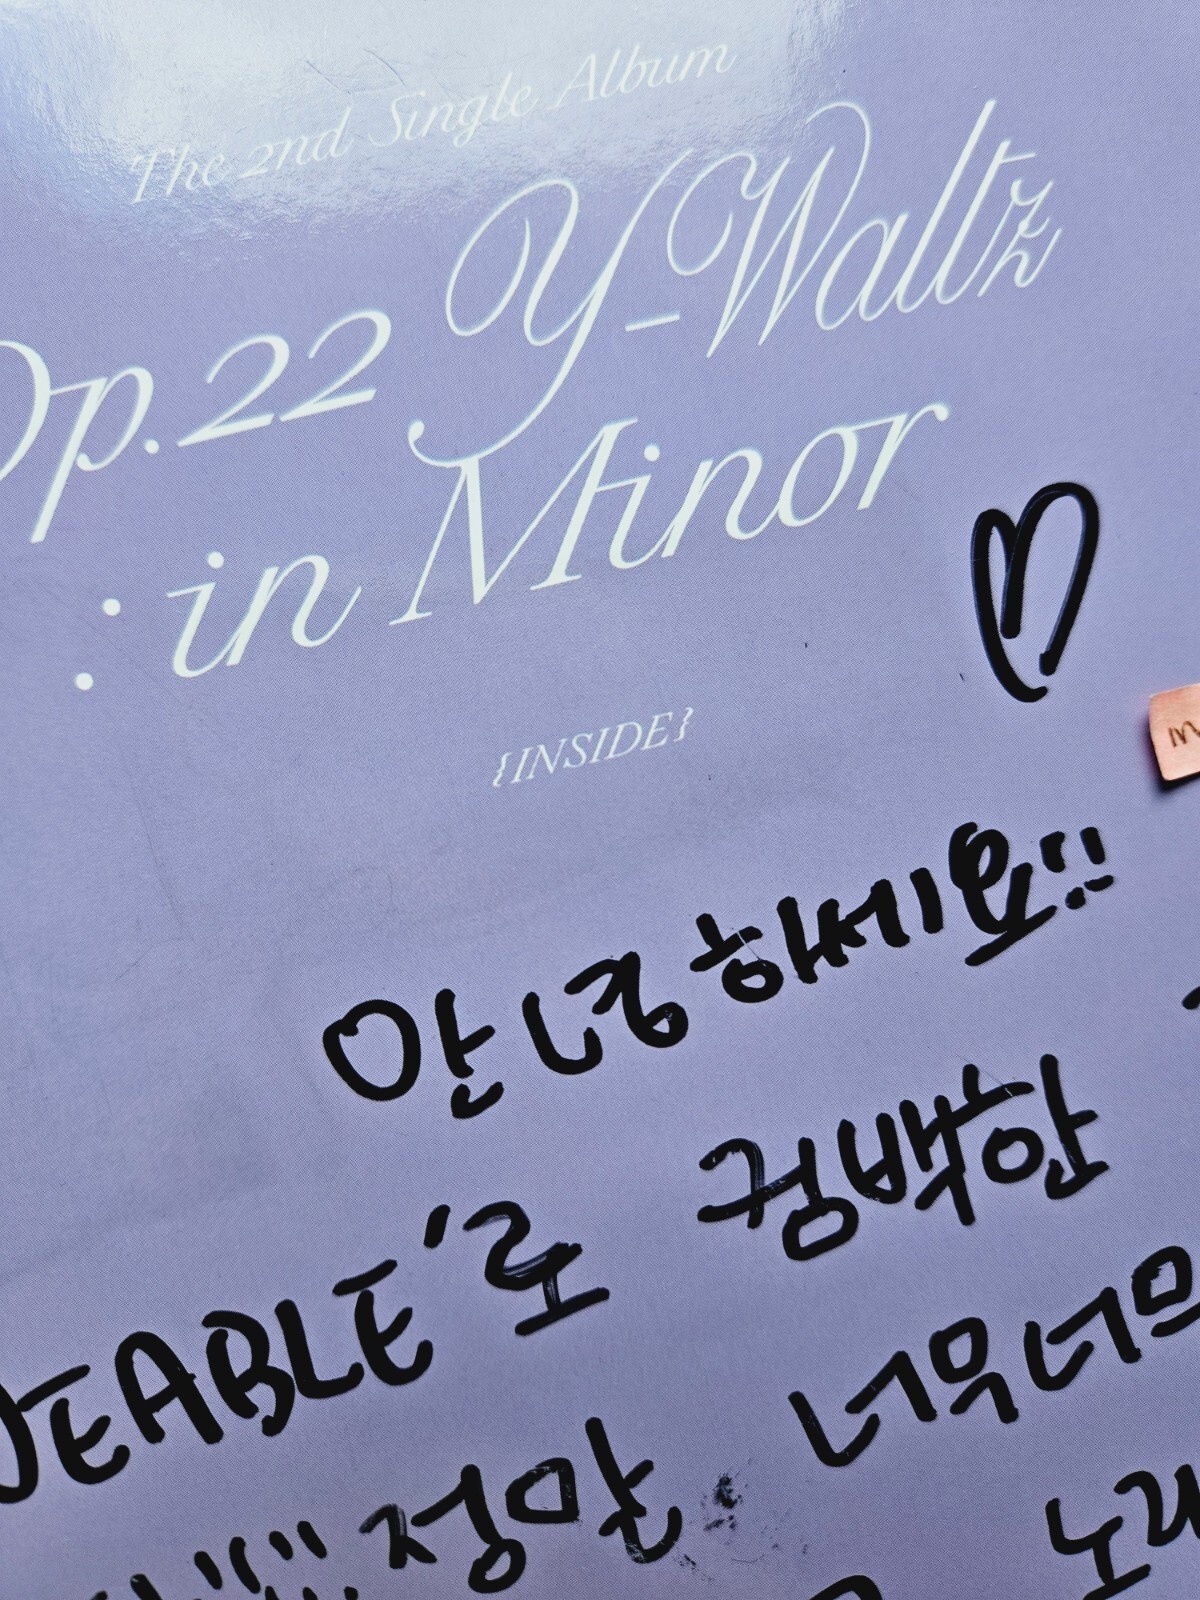 The 2nd Single Album
Op.22 Y-Waltz
: in Minor
{INSIDE}
안녕하세요!!
EABLE'로 컴백한
너무너무
정말
노래